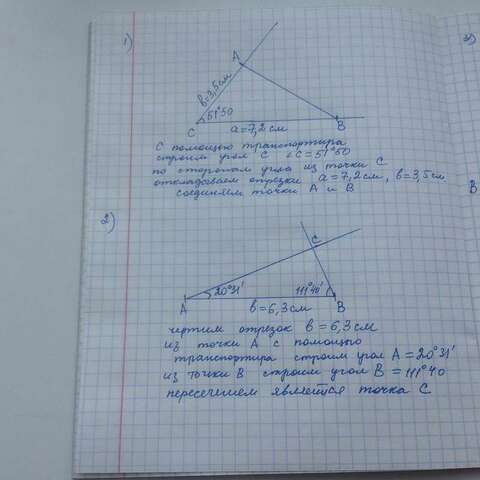 1)
A
b=3,5см
51°50
C
a=7,2см
B
С помощью транспортира
строим угол С ∠С=51°50
по сторонам угла из точки С
откладоваем отрезки a=7,2см, b=3,5см
соединяем точки А и В
2)
C
20°31'
111°40'
A
b=6,3см
B
чертим отрезок b=6,3см
из точки А с помощью
транспортира строим угол А=20°31'
из точки В строим угол В=111°40
пересечением является точка С
3)
В